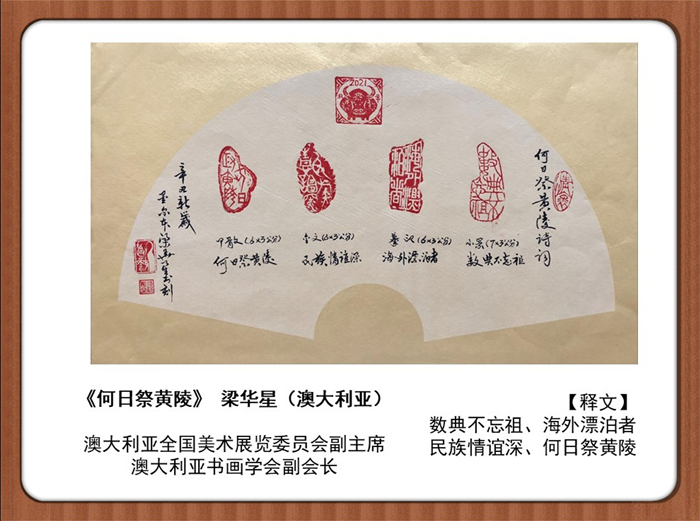 2021
何日祭黄陵诗词
小篆(7x3公分)
数典不忘祖
(6x3公分)
海外漂泊者
金文(6x3公分)
民族情谊深
(6x3公分)
何日祭黄陵
辛丑新岁
墨尔本梁华星刻
《何日祭黄陵》 梁华星（澳大利亚）
澳大利亚全国美术展览委员会副主席
澳大利亚书画学会副会长
【释文】
数典不忘祖、海外漂泊者
民族情谊深、何日祭黄陵